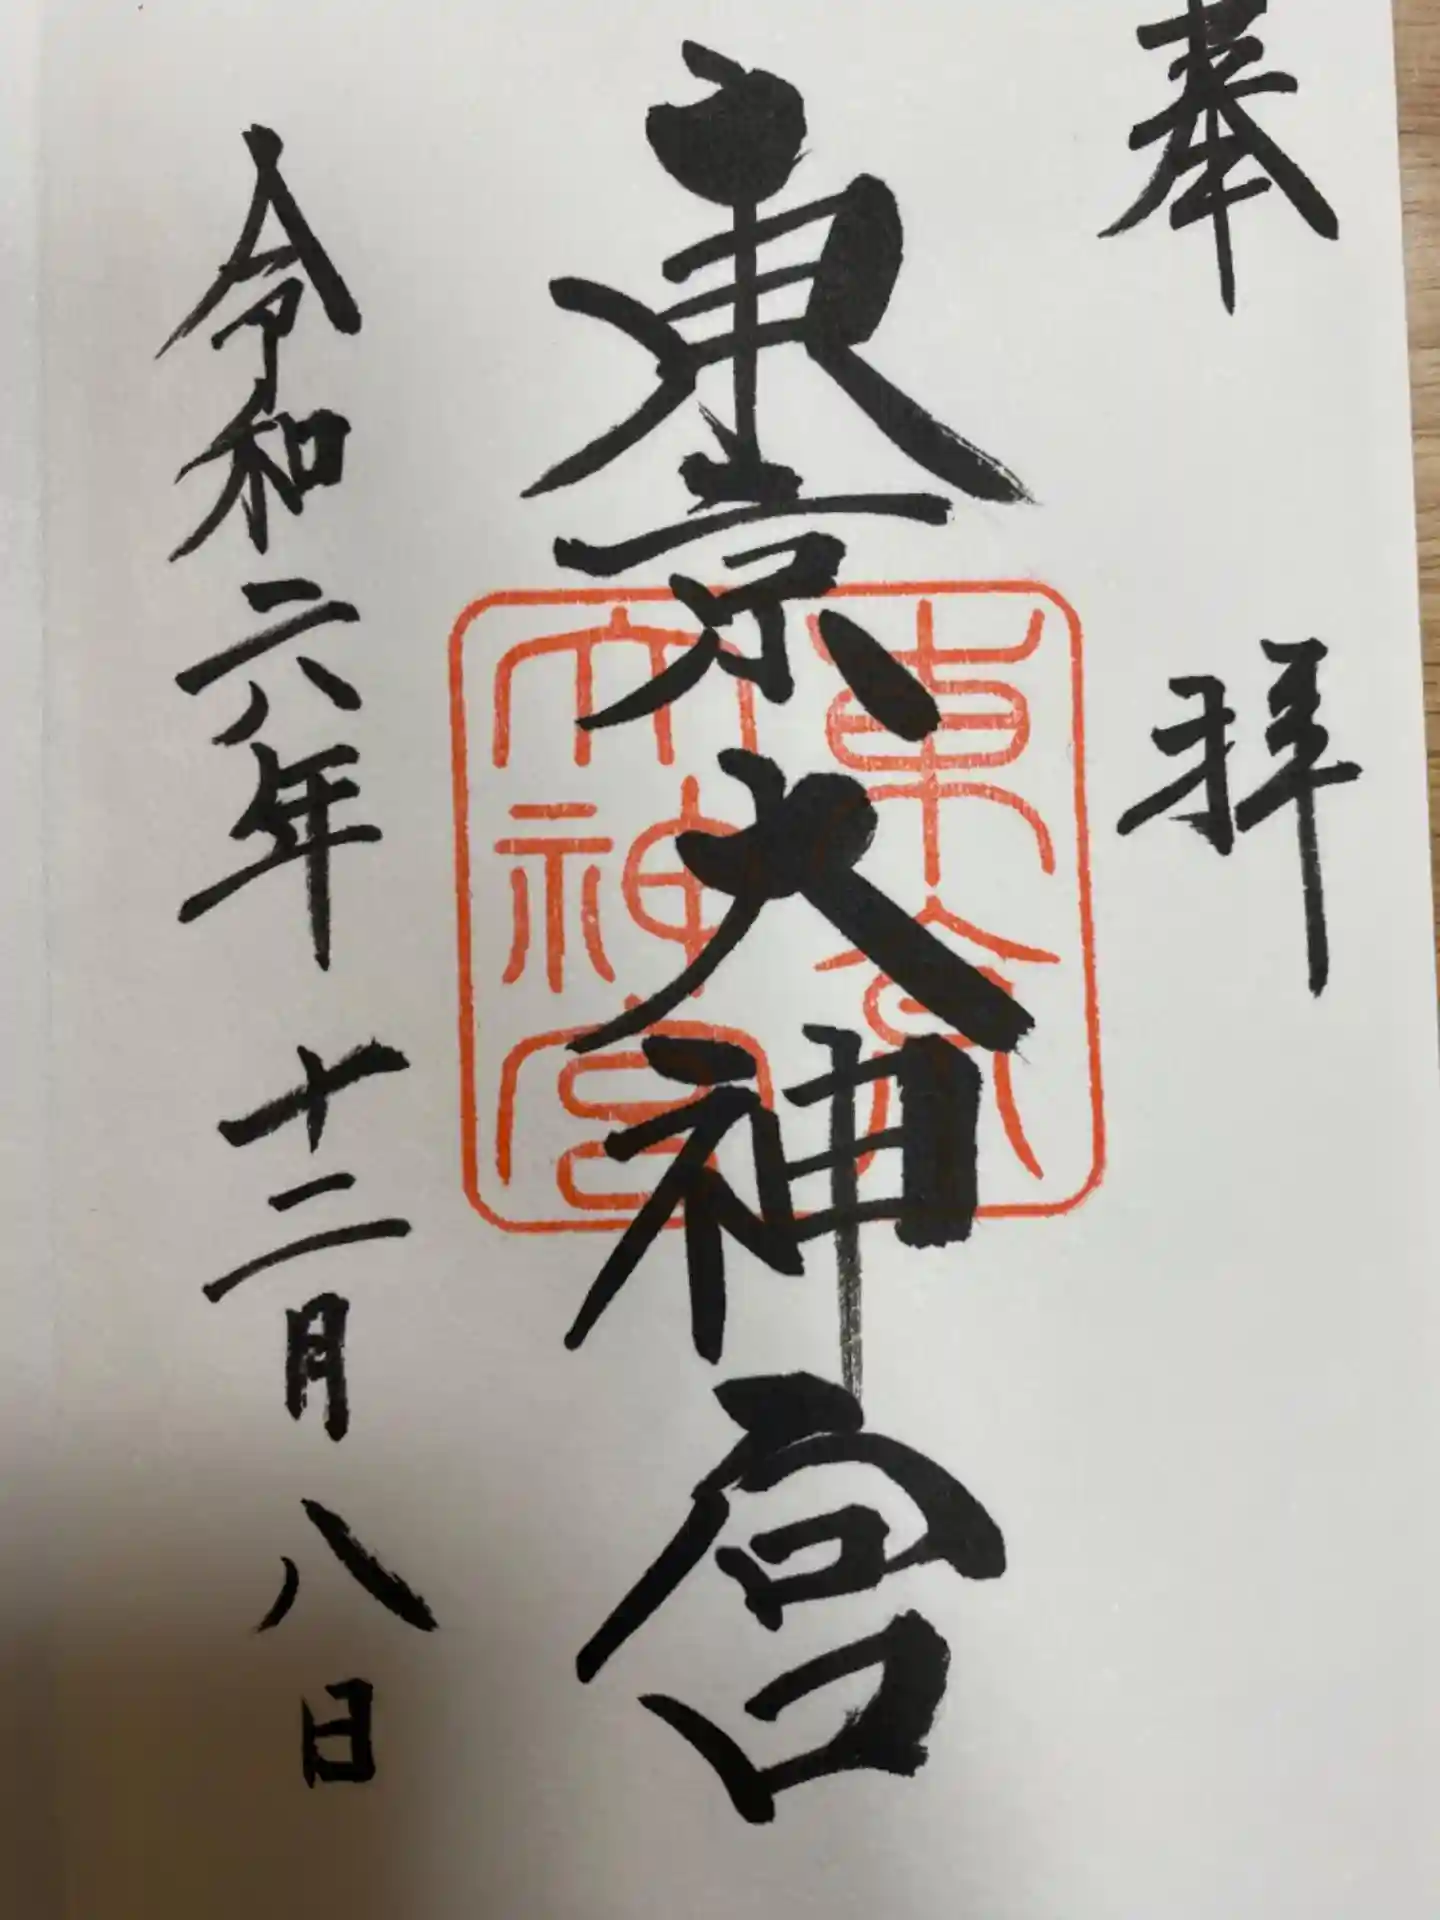 奉拝
東京大神宮
東京
大神宮
令和六年十二月八日